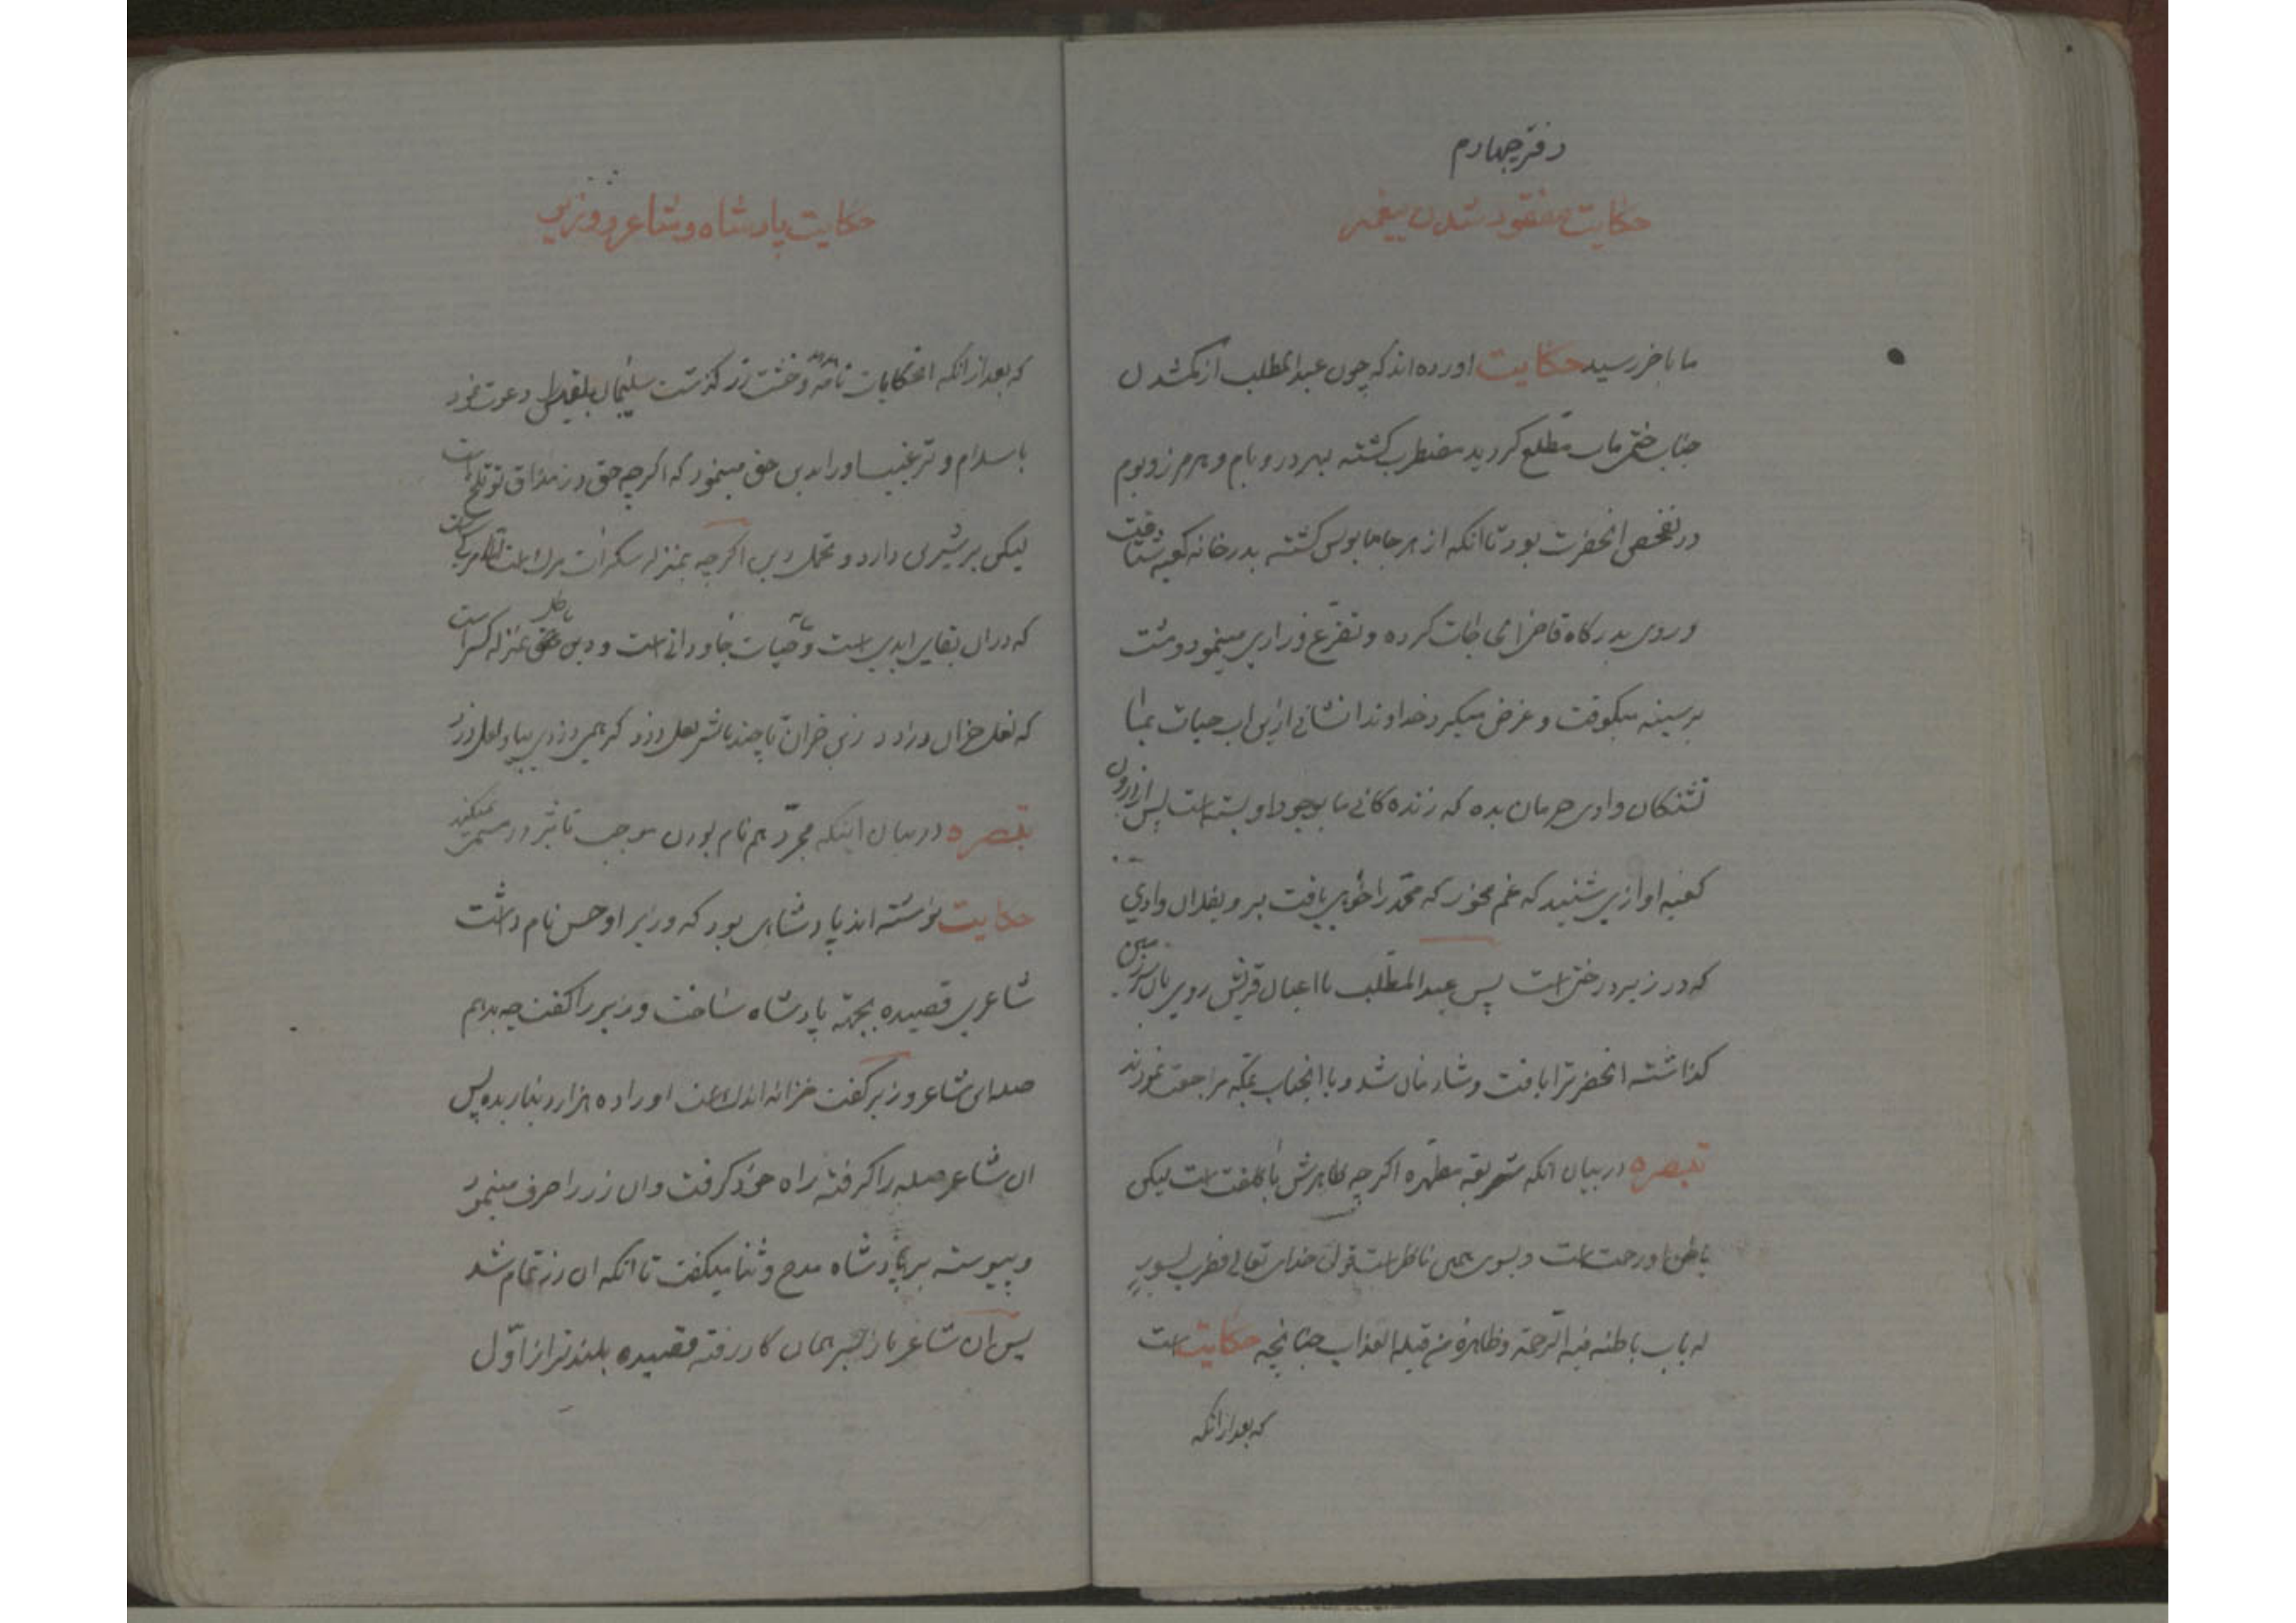 دفتر چهارم
حکایت مفقود شدن پیغمبر
ما باخر رسید حکایت اورده اند که چون عبدالمطلب از کمشدن
جناب ختمی ماب مطلع کردید مضطرب کشته بهر در و بام و هر مرز و بوم
در تفحص انحضرت بود تا انکه از هر جا مایوس کشته بدر خانه کعبه شتافت
و روی بدرکاه قاضی الحاجات کرده و تضرع و زاری مینمود و مشت
بر سینه میکوفت و عرض میکرد خداوندا نشانی ازین اب حیات بما
تشنکان وادی حرمان بده که زنده کانی ما بوجود او بسته است پس از درون
کعبه اوازی شنید که غم مخور که محمد را خواهی یافت برو بفلان وادی
که در زیر درختی است پس عبدالمطلب با اعیان قریش روی بان سرزمین
کذاشته انحضرترا یافت و شادمان شد و با انجناب بمکه مراجعت نمودند
تبصره در بیان انکه شریعه مطهره اکرچه ظاهرش با کلفت است لیکن
باطن او رحمت است و بسوی همین ناظر است قول خدای تعالی فضرب بسور
له باب باطنه فیه الرحمة و ظاهره من قبله العذاب چنانچه حکایت است
که بعد از انکه
حکایت پادشاه و شاعر و وزیر
که بعد از انکه انحکایات نامه و خشت زر کذشت سلیمان بلقیس را دعوت نمود
باسلام و ترغیب او را بدین حق مینمود که اکرچه حق در مذاق تو تلخ است
لیکن بر شیرین دارد و تحمل دین اکرچه بمنزله سکرات مرک است
که در ان بقای ابدی است و حیات جاودانی است و دین باطل بمنزله
که نعل خران دزدد
تبصره در بیان اینکه مجرد هم نام بودن موجب تاثیر در مسمی نمیکند
حکایت نوشته اند پادشاهی بود که وزیر او حسن نام داشت
شاعری قصیده بجهة پادشاه ساخت وزیر را کفت چه بدهم
صله این شاعر وزیر کفت خزانه اندک است او را ده هزار دینار بده پس
ان شاعر صله را کرفته راه خود کرفت وان زر را صرف مینمود
و پیوسته بر پادشاه مدح و ثنا میکفت تا انکه ان زر تمام شد
پس ان شاعر باز بر سر همان کار رفته قصیده بلندتر از اول